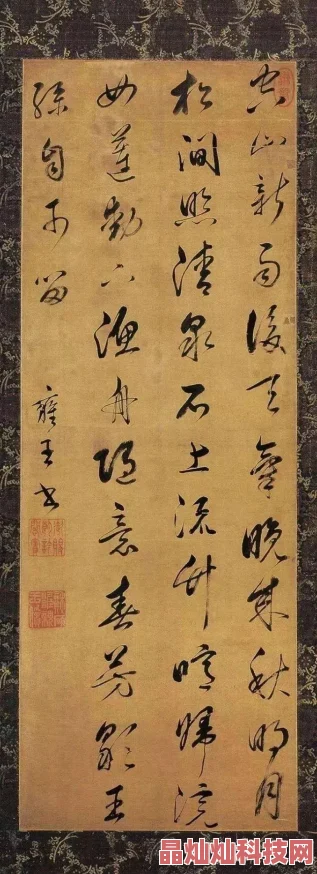 空山新雨後天氣晚來秋明月
松間照清泉石上流竹喧歸浣
女蓮動下漁舟隨意春芳歇王
孫自可留
雍王書
晶灿灿科技网